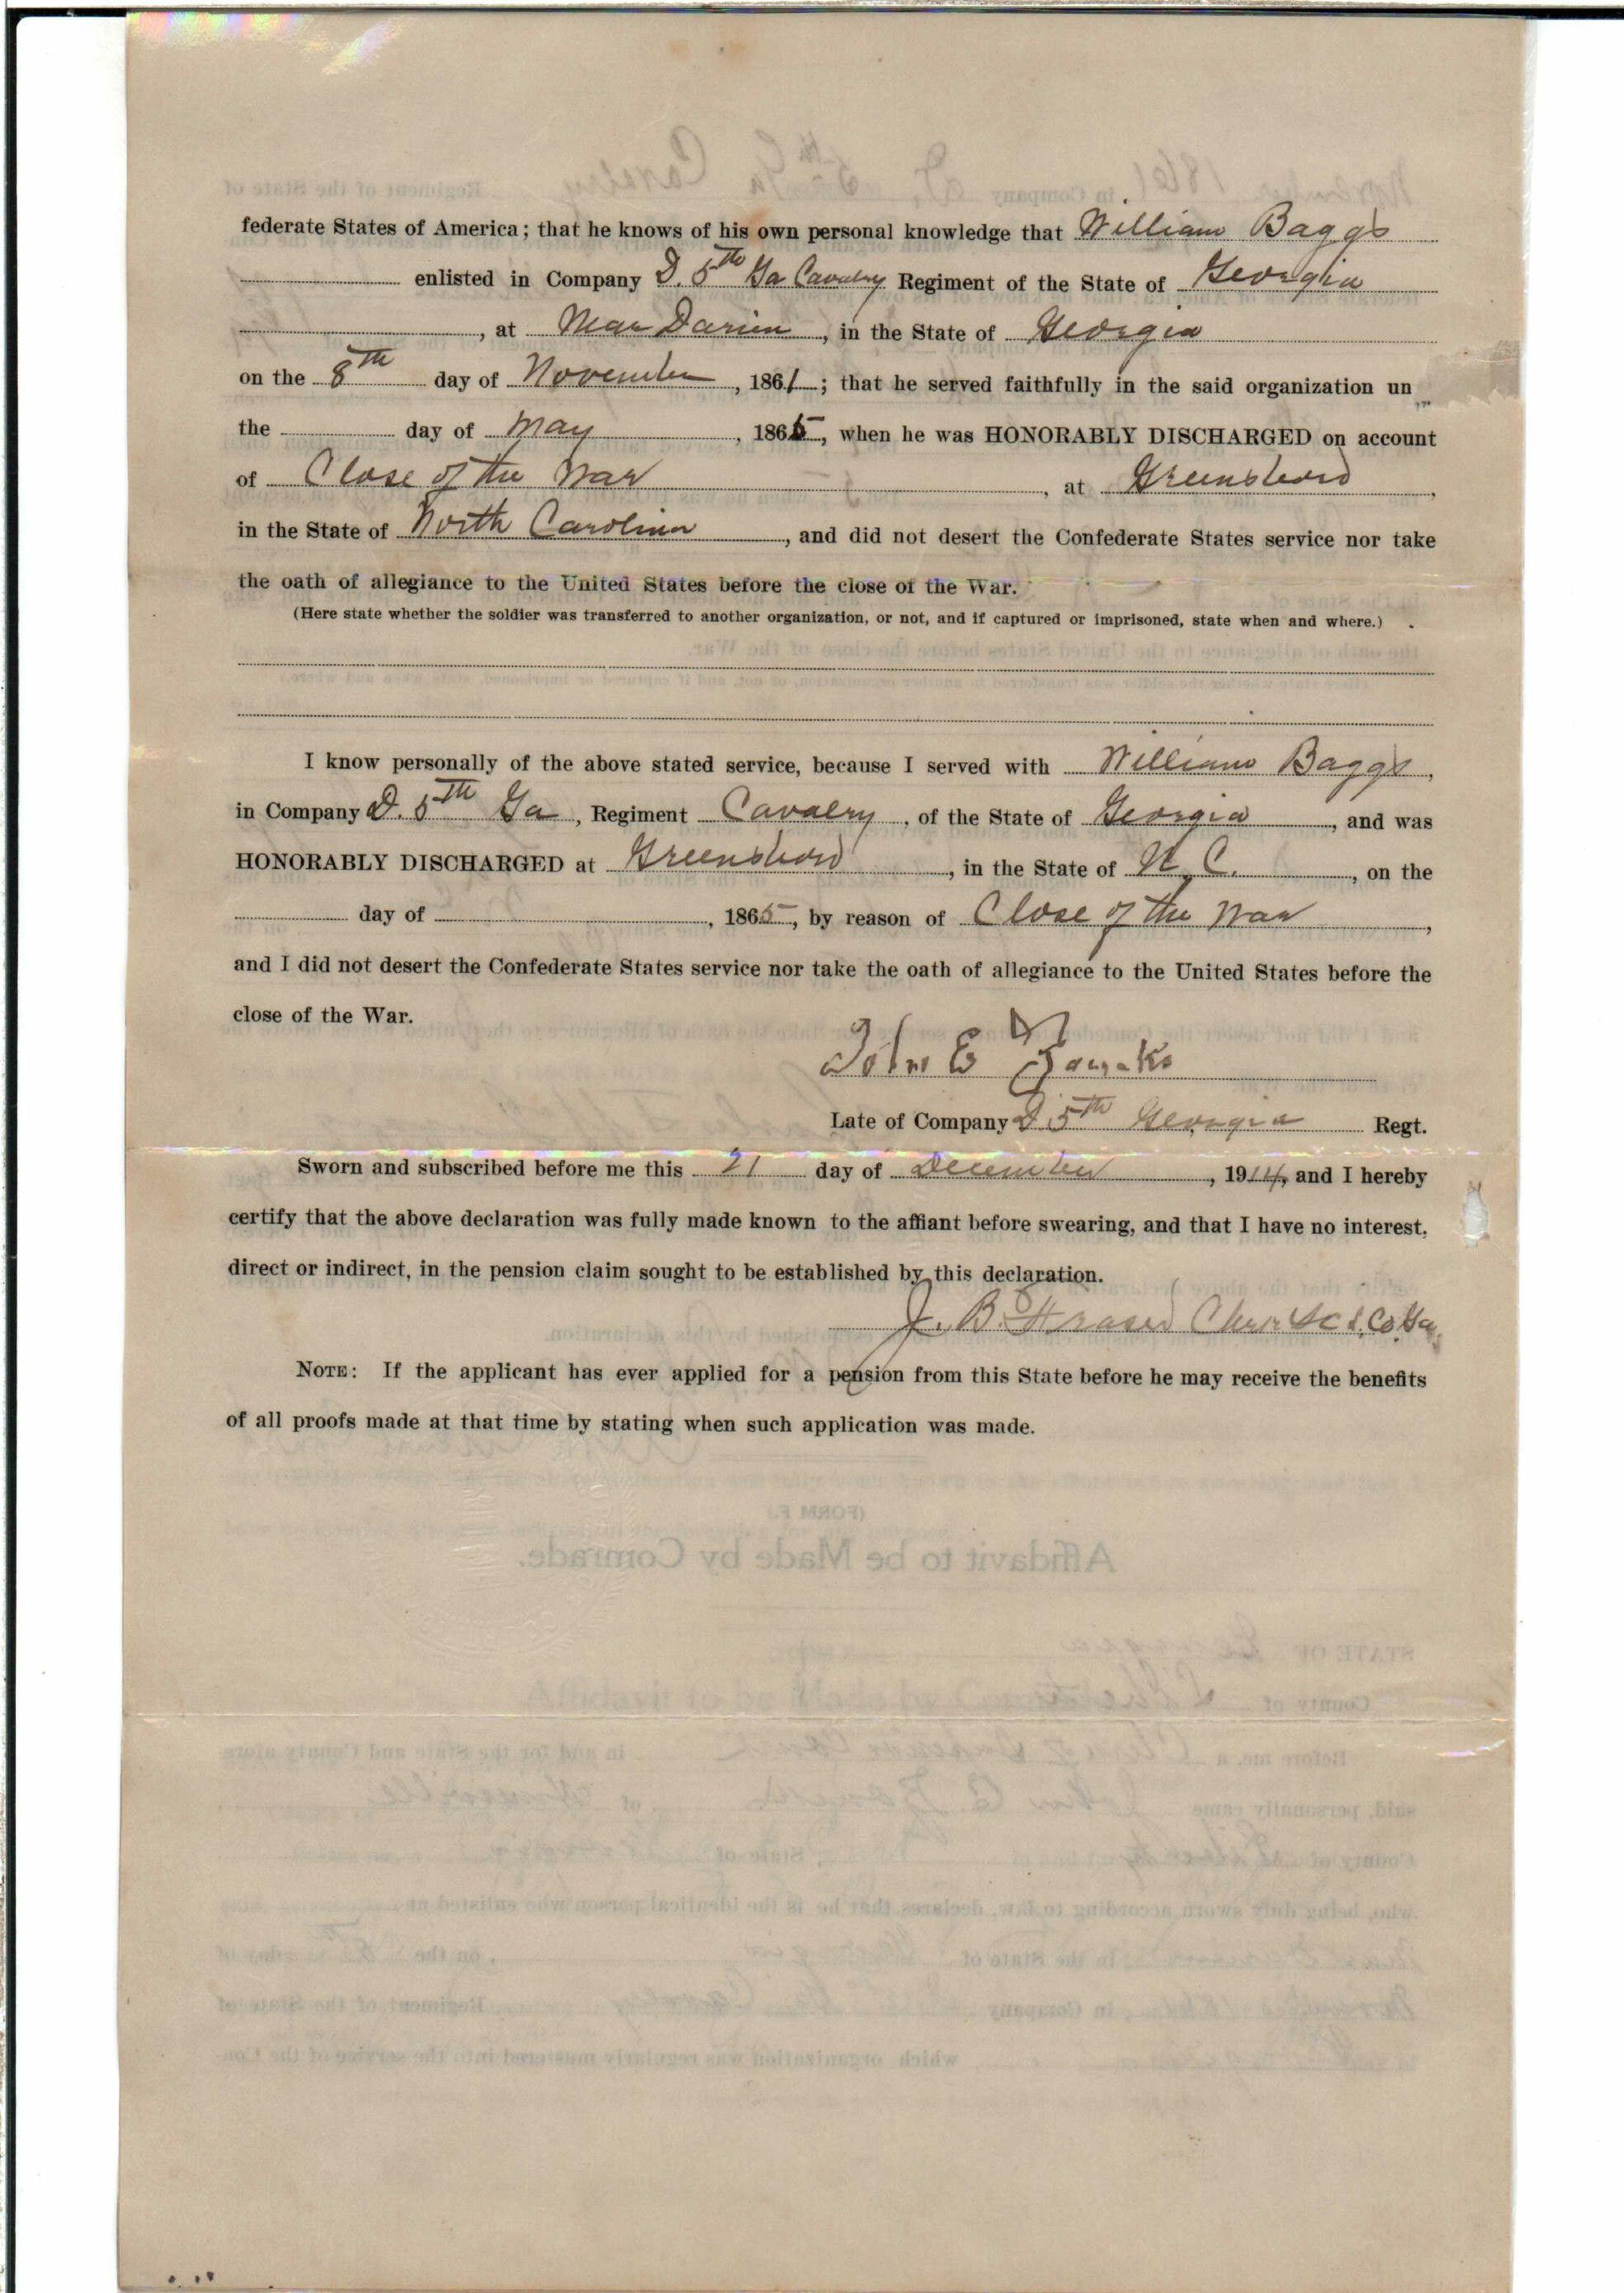 federate States of America; that he knows of his own personal knowledge that William Baggs
enlisted in Company D. 5th Ga Cavalry Regiment of the State of Georgia
, at Near Darien, in the State of Georgia
on the 8th day of November, 1861; that he served faithfully in the said organization un
the day of May, 1865, when he was HONORABLY DISCHARGED on account
of Close of the War, at Greensboro,
in the State of North Carolina, and did not desert the Confederate States service nor take
the oath of allegiance to the United States before the close of the War.
(Here state whether the soldier was transferred to another organization, or not, and if captured or imprisoned, state when and where.)
I know personally of the above stated service, because I served with William Baggs,
in Company D. 5th Ga, Regiment Cavalry, of the State of Georgia, and was
HONORABLY DISCHARGED at Greensboro, in the State of N. C., on the
day of , 1865, by reason of Close of the War,
and I did not desert the Confederate States service nor take the oath of allegiance to the United States before the
close of the War.
John E
Late of Company D 5th Georgia Regt.
Sworn and subscribed before me this 21 day of December, 1914, and I hereby
certify that the above declaration was fully made known to the affiant before swearing, and that I have no interest,
direct or indirect, in the pension claim sought to be established by this declaration.
J. B. Fraser
NOTE: If the applicant has ever applied for a pension from this State before he may receive the benefits
of all proofs made at that time by stating when such application was made.